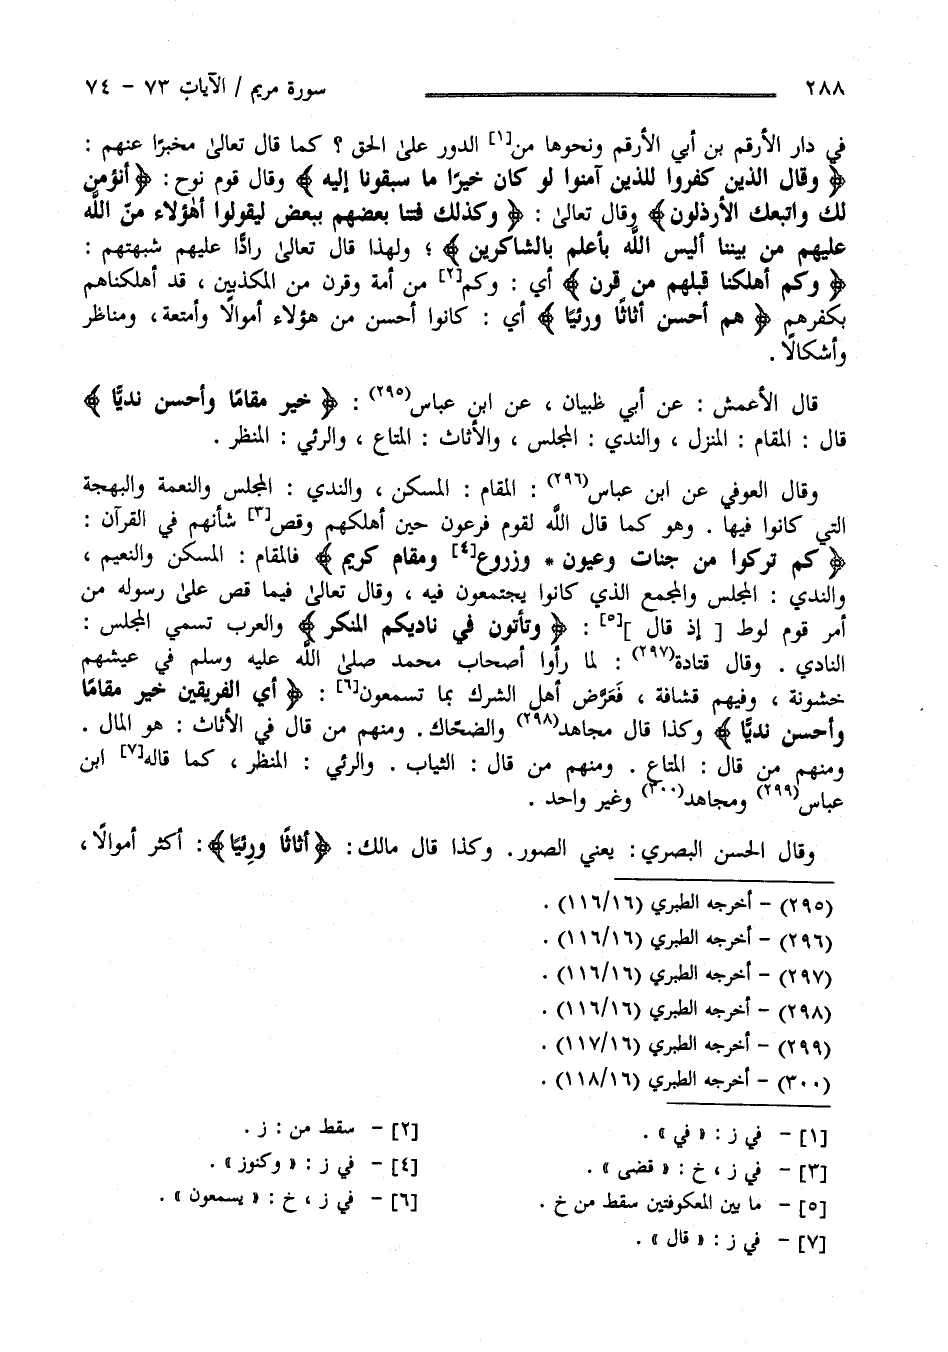 ٢٨٨ سورة مريم / الآيات ٧٣ - ٧٤
في دار الأرقم بن أبي الأرقم ونحوها من[١] الدور على الحق ؟ كما قال تعالى مخبرًا عنهم :
﴿ وقال الذين كفروا للذين آمنوا لو كان خيرًا ما سبقونا إليه ﴾ وقال قوم نوح : ﴿ أنؤمن
لك واتبعك الأرذلون﴾ وقال تعالى : ﴿ وكذلك فتنا بعضهم ببعض ليقولوا أهؤلاء منّ الله
عليهم من بيننا أليس الله بأعلم بالشاكرين ﴾ ؛ ولهذا قال تعالى رادًّا عليهم شبهتهم :
﴿ وكم أهلكنا قبلهم من قرن ﴾ أي : وكم[٢] من أمة وقرن من المكذبين ، قد أهلكناهم
بكفرهم ﴿ هم أحسن أثاثًا ورئيًا ﴾ أي : كانوا أحسن من هؤلاء أموالًا وأمتعة ، ومناظر
وأشكالًا .
قال الأعمش : عن أبي ظبيان ، عن ابن عباس(٢٩٥) : ﴿ خير مقامًا وأحسن نديًّا ﴾
قال : المقام : المنزل ، والندي : المجلس ، والأثاث : المتاع ، والرئي : المنظر .
وقال العوفي عن ابن عباس(٢٩٦) : المقام : المسكن ، والندي : المجلس والنعمة والبهجة
التي كانوا فيها . وهو كما قال الله لقوم فرعون حين أهلكهم وقص[٣] شأنهم في القرآن :
﴿كم تركوا من جنات وعيون * وزروع[٤] ومقام كريم ﴾ فالمقام : المسكن والنعيم ،
والندي : المجلس والمجمع الذي كانوا يجتمعون فيه ، وقال تعالى فيما قص على رسوله من
أمر قوم لوط [ إذ قال ][٥] : ﴿ وتأتون في ناديكم المنكر ﴾ والعرب تسمي المجلس :
النادي . وقال قتادة(٢٩٧) : لما رأوا أصحاب محمد صلى الله عليه وسلم في عيشهم
خشونة ، وفيهم قشافة ، فَعَرَّض أهل الشرك بما تسمعون[٦] : ﴿ أي الفريقين خير مقامًا
وأحسن نديًّا ﴾ وكذا قال مجاهد(٢٩٨) والضحّاك. ومنهم من قال في الأثاث : هو المال .
ومنهم من قال : المتاع . ومنهم من قال : الثياب . والرئي : المنظر ، كما قاله[٧] ابن
عباس(٢٩٩) ومجاهد(٣٠٠) وغير واحد .
وقال الحسن البصري : يعني الصور. وكذا قال مالك: ﴿أثاثًا ورِئيًا﴾: أكثر أموالًا،
(٢٩٥) - أخرجه الطبري (١١٦/١٦) .
(٢٩٦) - أخرجه الطبري (١١٦/١٦) .
(٢٩٧) - أخرجه الطبري (١١٦/١٦) .
(٢٩٨) - أخرجه الطبري (١١٦/١٦) .
(٢٩٩) - أخرجه الطبري (١١٧/١٦) .
(٣٠٠) - أخرجه الطبري (١١٨/١٦) .
[١] - في ز : « في » . [٢] - سقط من : ز .
[٣] - في ز ، خ : « قضى » . [٤] - في ز : « وكنوز » .
[٥] - ما بين المعكوفتين سقط من خ . [٦] - في ز ، خ : « يسمعون » .
[٧] - في ز : « قال » .